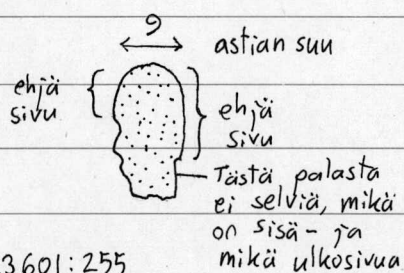 9
astian suu
ehjä
sivu
ehjä
sivu
Tästä palasta
ei selviä, mikä
on sisä- ja
mikä ulkosivua
3601:255